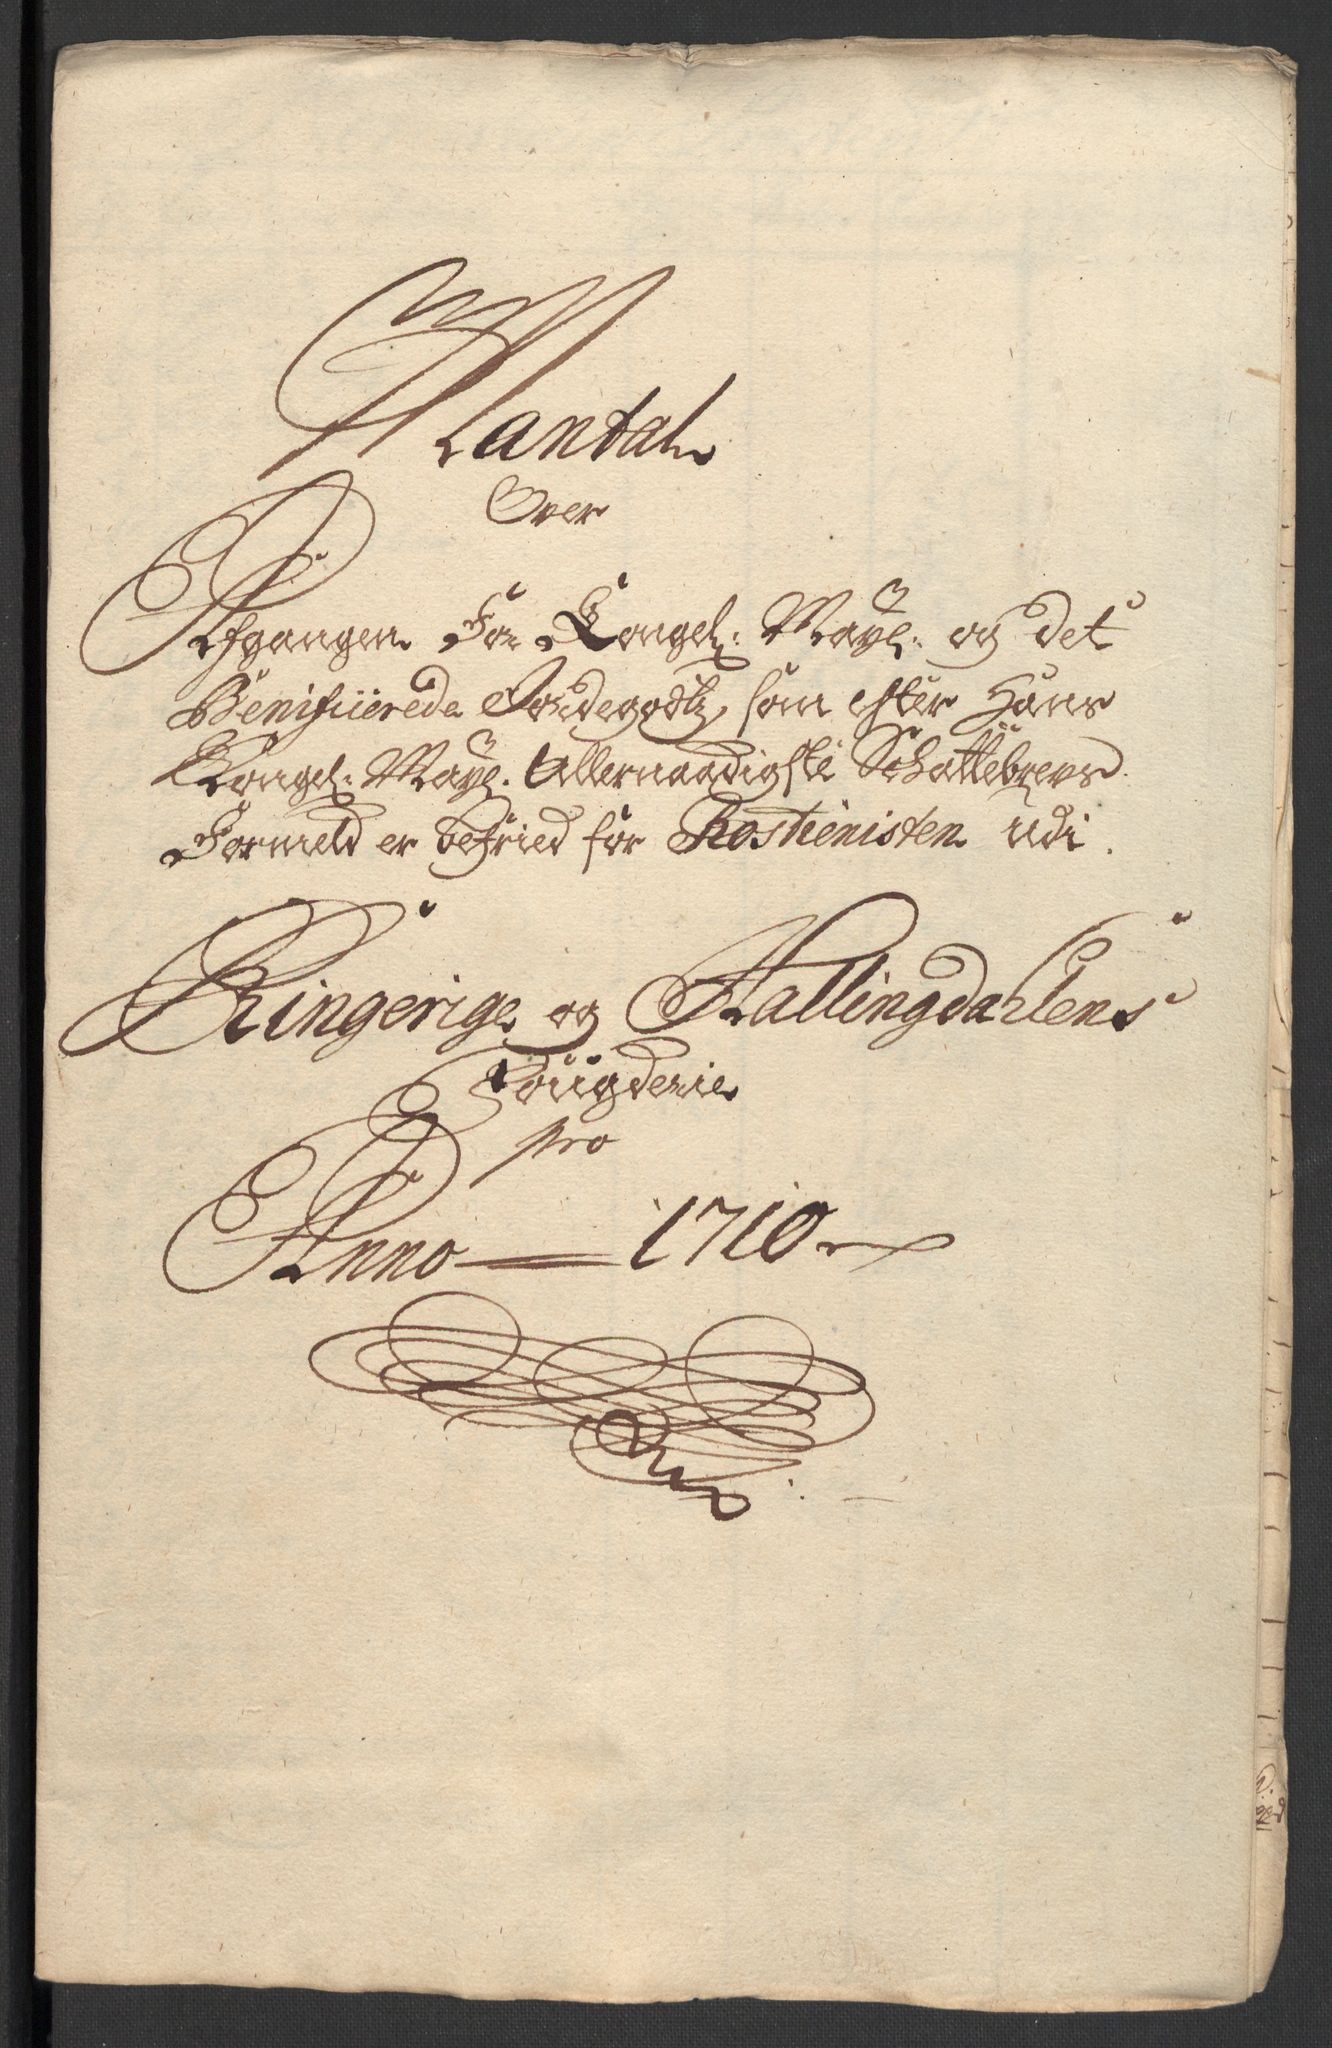 Mantal
Over
Afgangen For Kongel: Mayt: og det
Benificerede Jordegodtz, som efter Hans
Kongel: Mayt. Allernaadigste Schattebrevs
Formeld er befried for Rostienisten udi.
Ringerige og Hallingdahlens
Fougderie
pro
Anno 1710